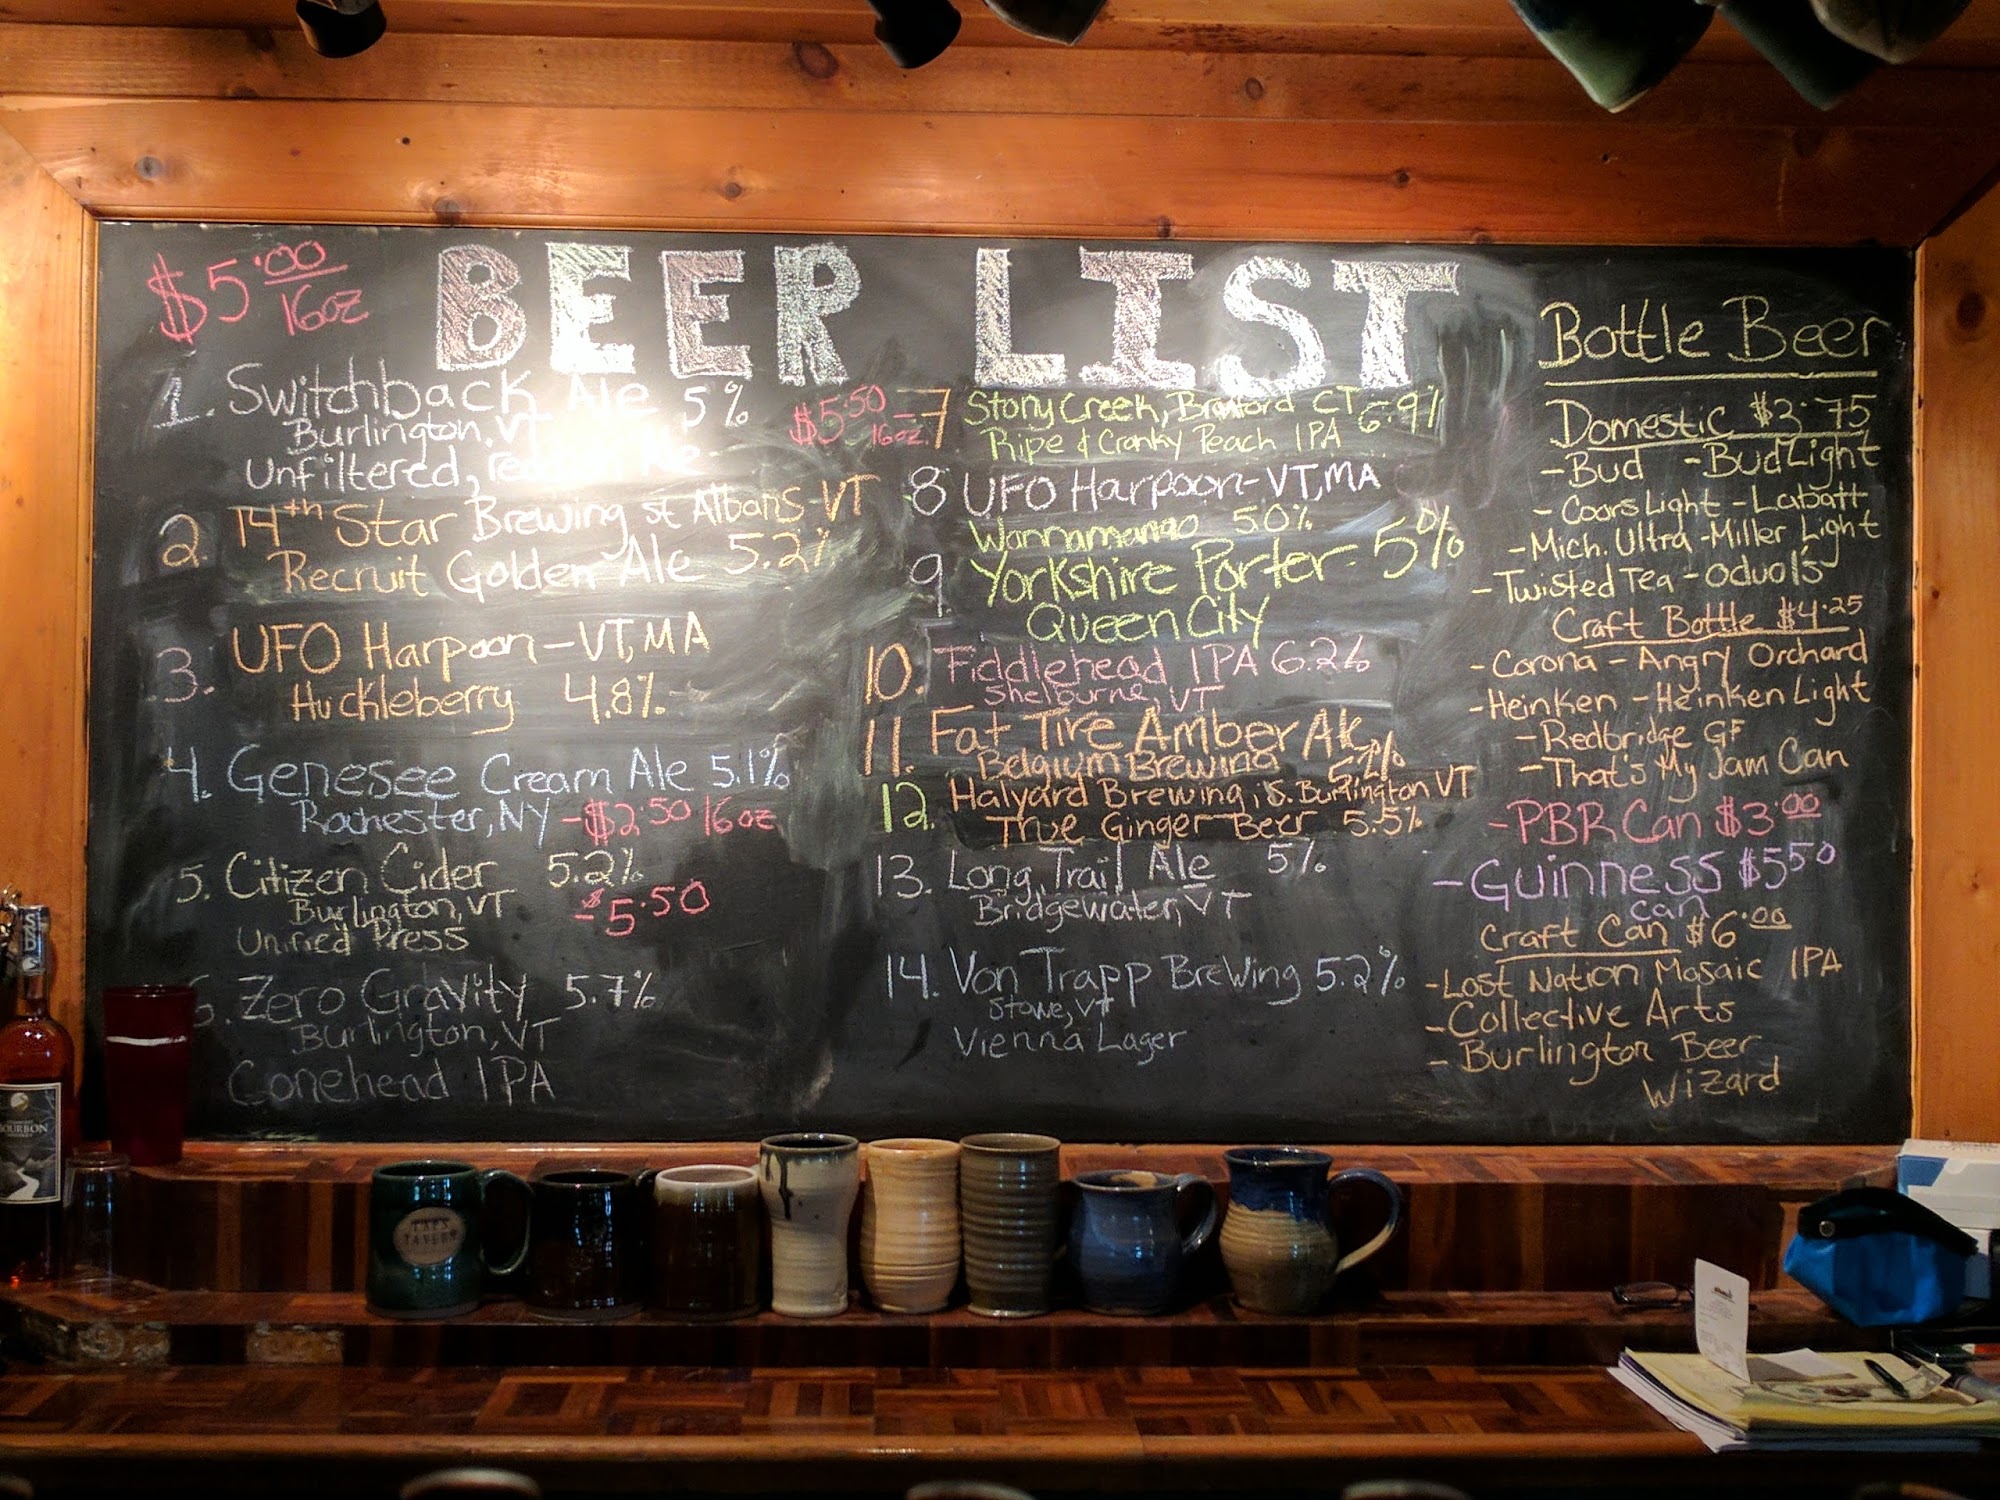 BEER LIST
$5.00
16oz
1. Switchback Ale 5%
Burlington, VT
Unfiltered,
2. 14th Star Brewing St Albans-VT
Recruit Golden Ale 5.2%
3. UFO Harpoon-VT,MA
Huckleberry 4.8%
4. Genesee Cream Ale 5.1%
Rochester, NY -$2.50 16oz
5. Citizen Cider 5.2%
Burlington, VT -$5.50
Unified Press
6. Zero Gravity 5.7%
Burlington, VT
Conehead IPA
$5.50 16oz. -7 Stony Creek, Branford CT - 6.9%
Ripe & Cranky Peach IPA
8 UFO Harpoon-VT,MA
Wannamango 5.0%
9 Yorkshire Porter - 5%
Queen City
10. Fiddlehead IPA 6.2%
Shelburne, VT
11. Fat Tire Amber Ale
Belgium Brewing 5.2%
12. Halyard Brewing, S. Burlington VT
True Ginger Beer 5.5%
13. Long Trail Ale 5%
Bridgewater, VT
14. Von Trapp Brewing 5.2%
Stowe, VT
Vienna Lager
Bottle Beer
Domestic $3.75
-Bud -BudLight
-Coors Light -Labatt
-Mich. Ultra -Miller Light
-Twisted Tea -Oduol's
Craft Bottle $4.25
-Corona -Angry Orchard
-Heinken -Heinken Light
-Redbridge GF
-That's My Jam Can
-PBR Can $3.00
-Guinness $5.50
can
Craft Can $6.00
-Lost Nation Mosaic IPA
-Collective Arts
-Burlington Beer
Wizard
BOURBON
TAPS
TAVERN